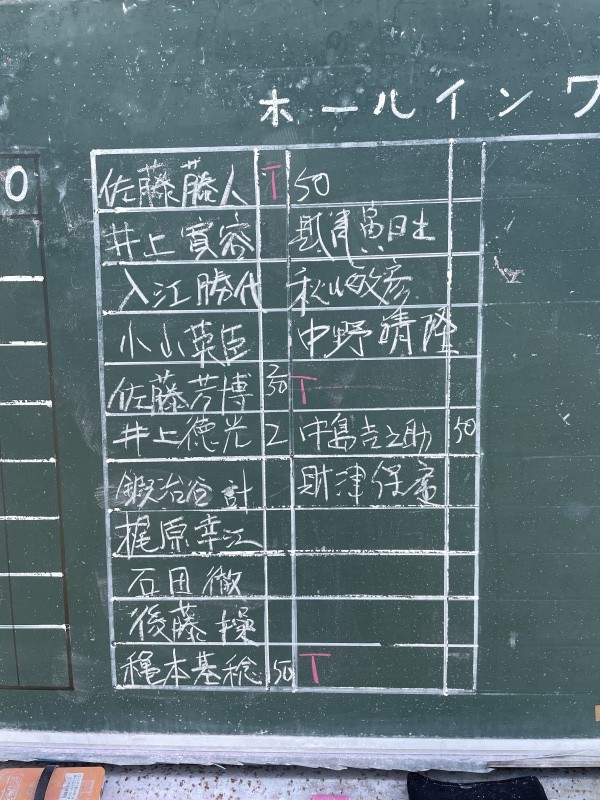 ホールイン ワ
0
佐藤藤人 T 50
井上實容
入江勝代 秋山敏彦
小山英臣 中野晴隆
佐藤芳博 50 T
井上徳光 2 中島吉之助 50
鍛治谷計 財津保彦
梶原幸江
石田徹
後藤操
穐本基稔 50 T